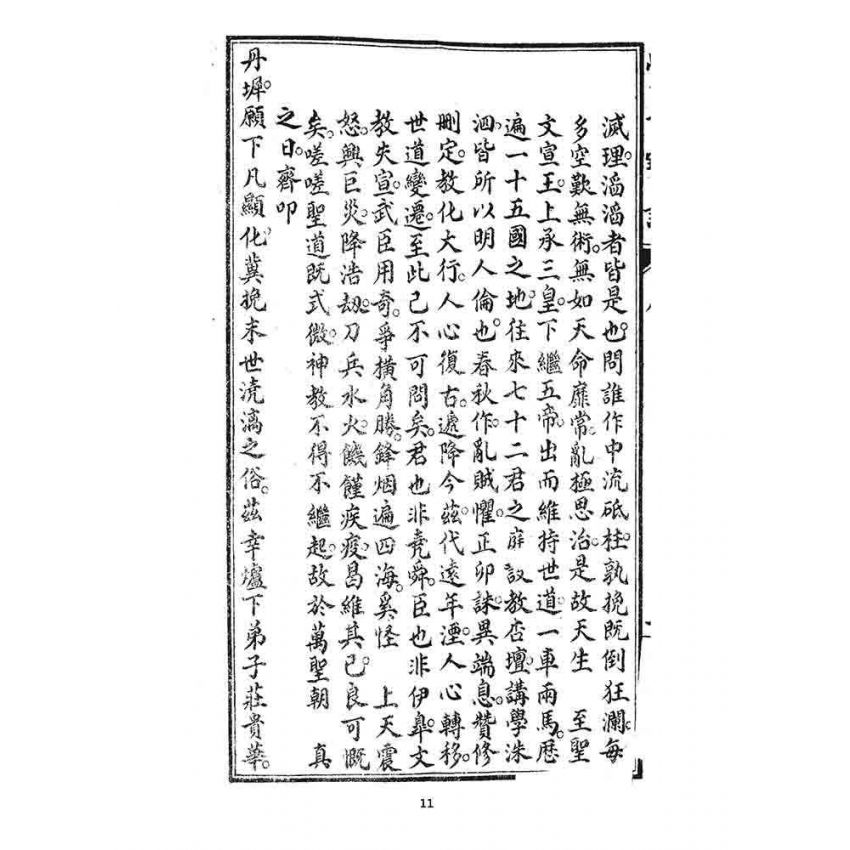 滅理。滔滔者皆是也。問誰作中流砥柱。孰挽既倒狂瀾。每
多空歎無術。無如天命靡常。亂極思治。是故天生　至聖
文宣王。上承三皇。下繼五帝。出而維持世道。一車兩馬。歷
遍一十五國之地。往來七十二君之庭。設教杏壇。講學洙
泗。皆所以明人倫也。春秋作。亂賊懼。正卯誅。異端息。贊修
刪定。教化大行。人心復古。遞降今茲。代遠年湮。人心轉移。
世道變遷。至此已不可問矣。君也非堯舜。臣也非伊皐。文
教失宣。武臣用奇。爭橫角勝。鋒烟遍四海。奚怪　上天震
怒。興巨災。降浩劫。刀兵水火。饑饉疾疫。曷維其已。良可慨
矣。嗟嗟聖道既式微。神教不得不繼起。故於萬聖朝　真
之日。齊叩
丹墀。願下凡顯化。冀挽末世澆漓之俗。茲幸爐下弟子莊貴華。
11